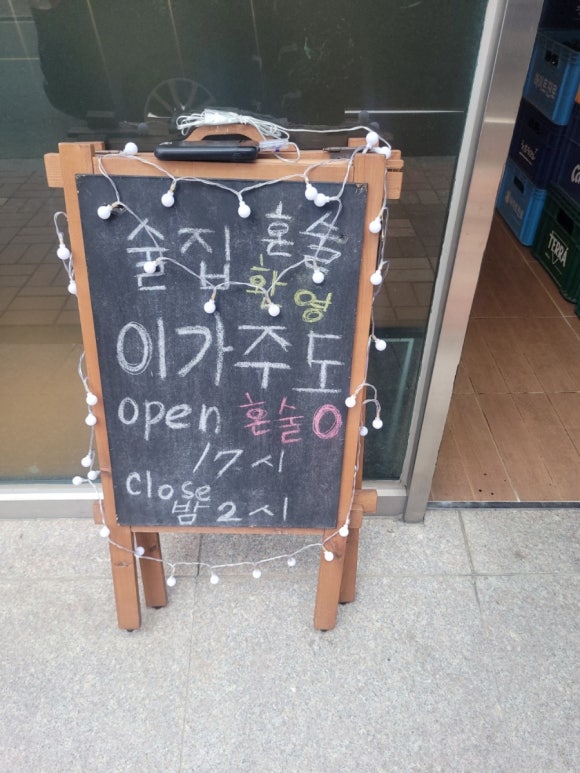 술집 혼술
환영
이가주도
open 혼술O
17시
close
밤 2시
하이트진로
TERRA